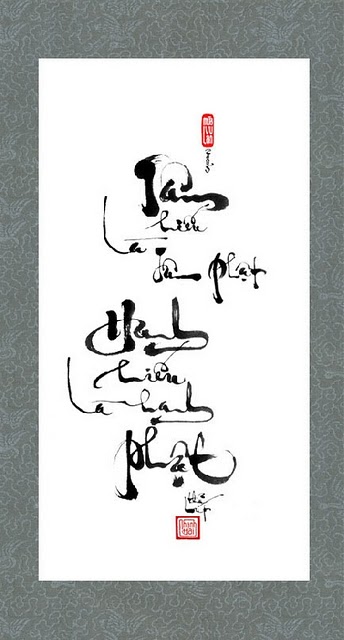 Tâm
hiếu
Là Tâm Phật
Hạnh
hiếu
Là hạnh
Phật